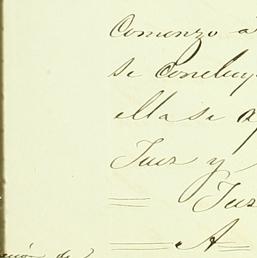 Comenzo á
se Concluy
ella se a
Juez y
Juz
ción de
A